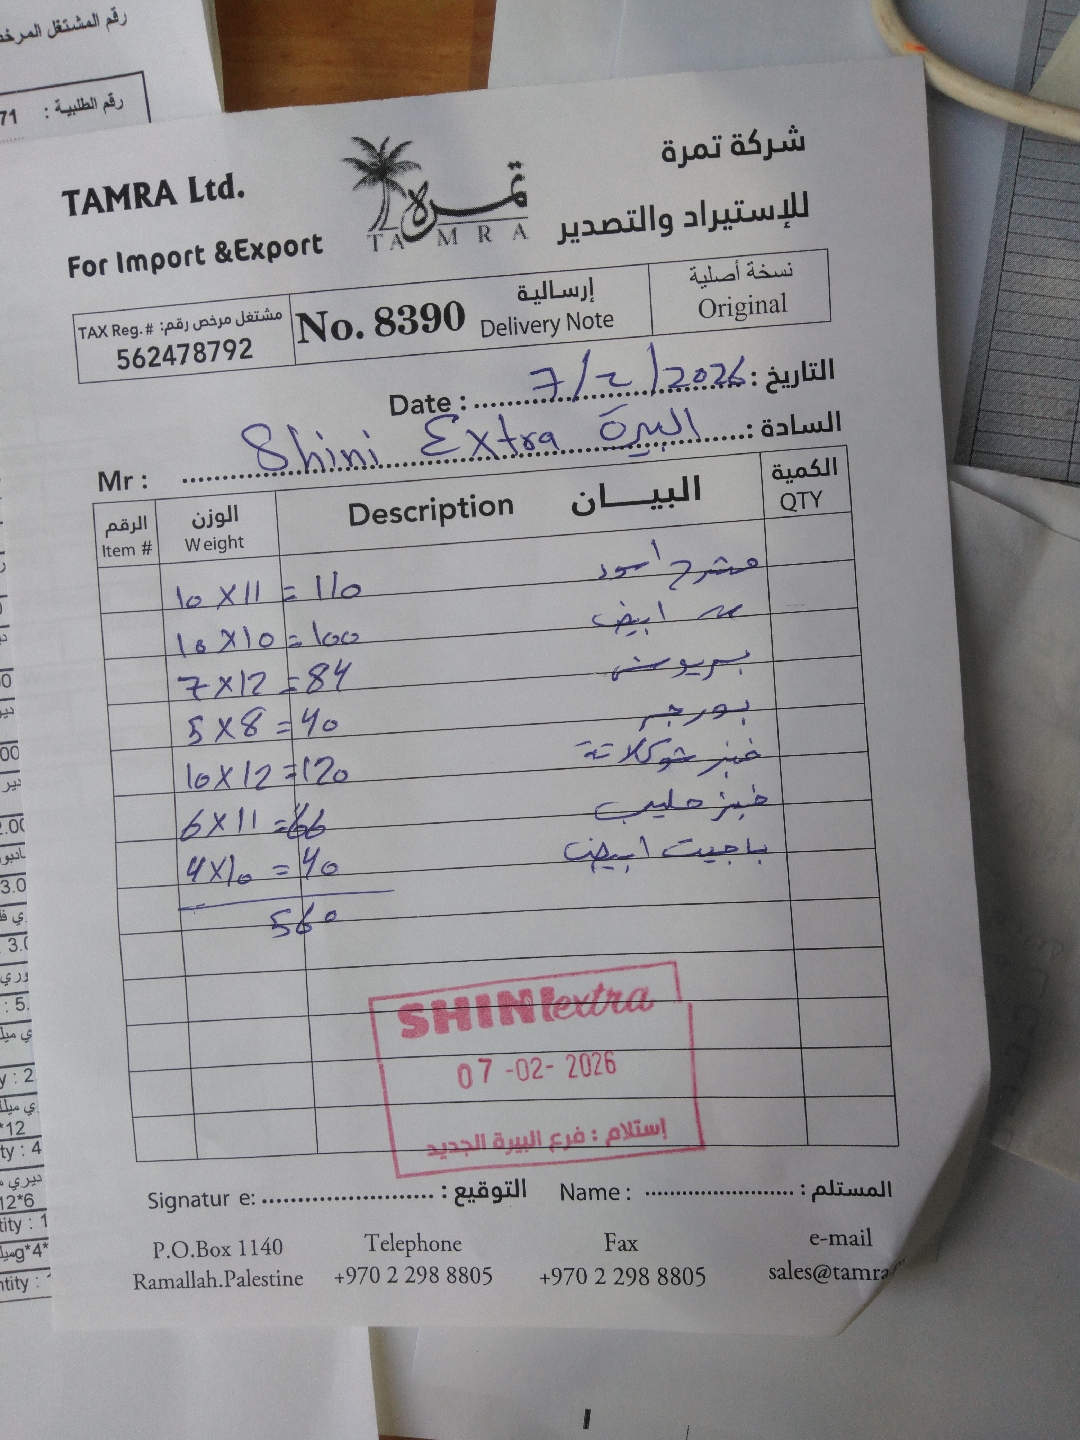 رقم المشتغل المرخص
رقم الطلبية : 71
TAMRA Ltd.
For Import &Export
تمرة
TAMRA
شركة تمرة
للإستيراد والتصدير
TAX Reg. # مشتغل مرخص رقم:
562478792
No. 8390
إرسالية
Delivery Note
نسخة أصلية
Original
Date : 7/2/2026 التاريخ :
Mr : Shini Extra البيرة السادة :
الرقم Item #
الوزن Weight
Description البيـــان
الكمية QTY
10 X 11 = 110 مشرح اسود
10 X 10 = 100 = ابيض
7 X 12 = 84 بريوش
5 X 8 = 40 بورجر
10 X 12 = 120 خبز شوكلاتة
6 X 11 = 66 خبز حليب
4 X 10 = 40 باجيت ابيض
560
SHINI extra
07 -02- 2026
إستلام : فرع البيرة الجديد
Signatur e: التوقيع :
Name : المستلم :
P.O.Box 1140
Ramallah.Palestine
Telephone
+970 2 298 8805
Fax
+970 2 298 8805
e-mail
sales@tamra